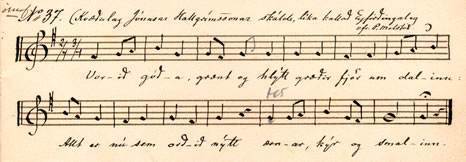 No 37. (Kvæðalag Jónasar Hallgrímssonar skálds, líka kallað Eyfirðingalag
Vor-ið góð-a, grænt og hlýtt græðir fjör um dal-inn:
Allt er nú sem orð-ið nýtt ærn-ar, kýr og smal-inn.